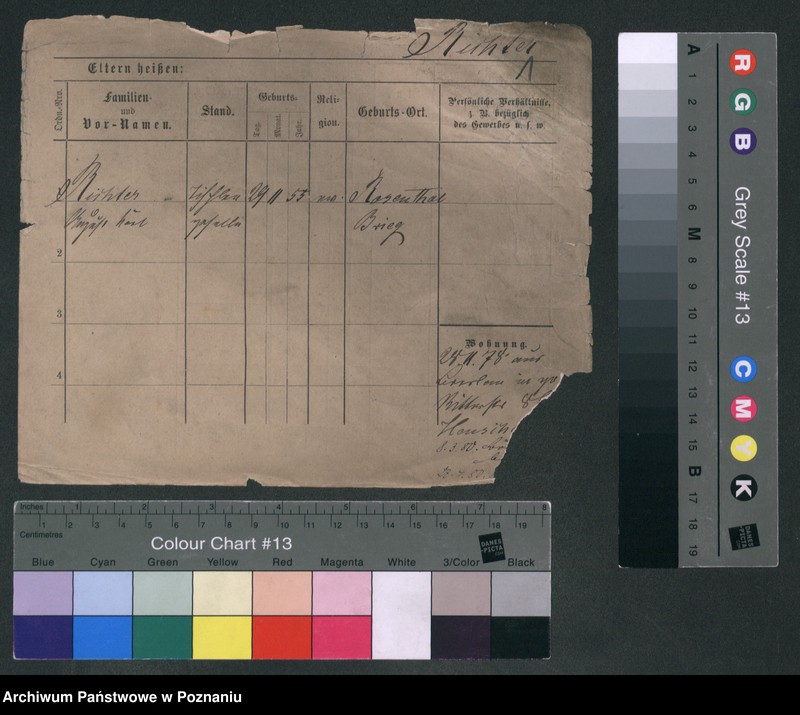 Richter
Eltern heißen:
Ordn.-Nro.
Familien-
und
Vor-Namen.
Stand.
Geburts-
Tag.
Monat.
Jahr.
Reli-
gion.
Geburts-Ort.
Persönliche Verhältnisse,
z. B. bezüglich
des Gewerbes u. s. w.
Richter
29 11 55
Rosenthal
Karl
Brieg
2
3
4
Wohnung.
28.11.78 aus
8.3.80.
Inches 1 2 3 4 5 6 7 8
1 2 3 4 5 6 7 8 9 10 11 12 13 14 15 16 17 18 19
Centimetres
Colour Chart #13
DANES
-PICTA
.COM
Blue Cyan Green Yellow Red Magenta White 3/Color Black
A 1 2 3 4 5 6 M 8 9 10 11 12 13 14 15 B 17 18 19
R G B
Grey Scale #13
C M Y K
DANES
-PICTA
.COM
Archiwum Państwowe w Poznaniu